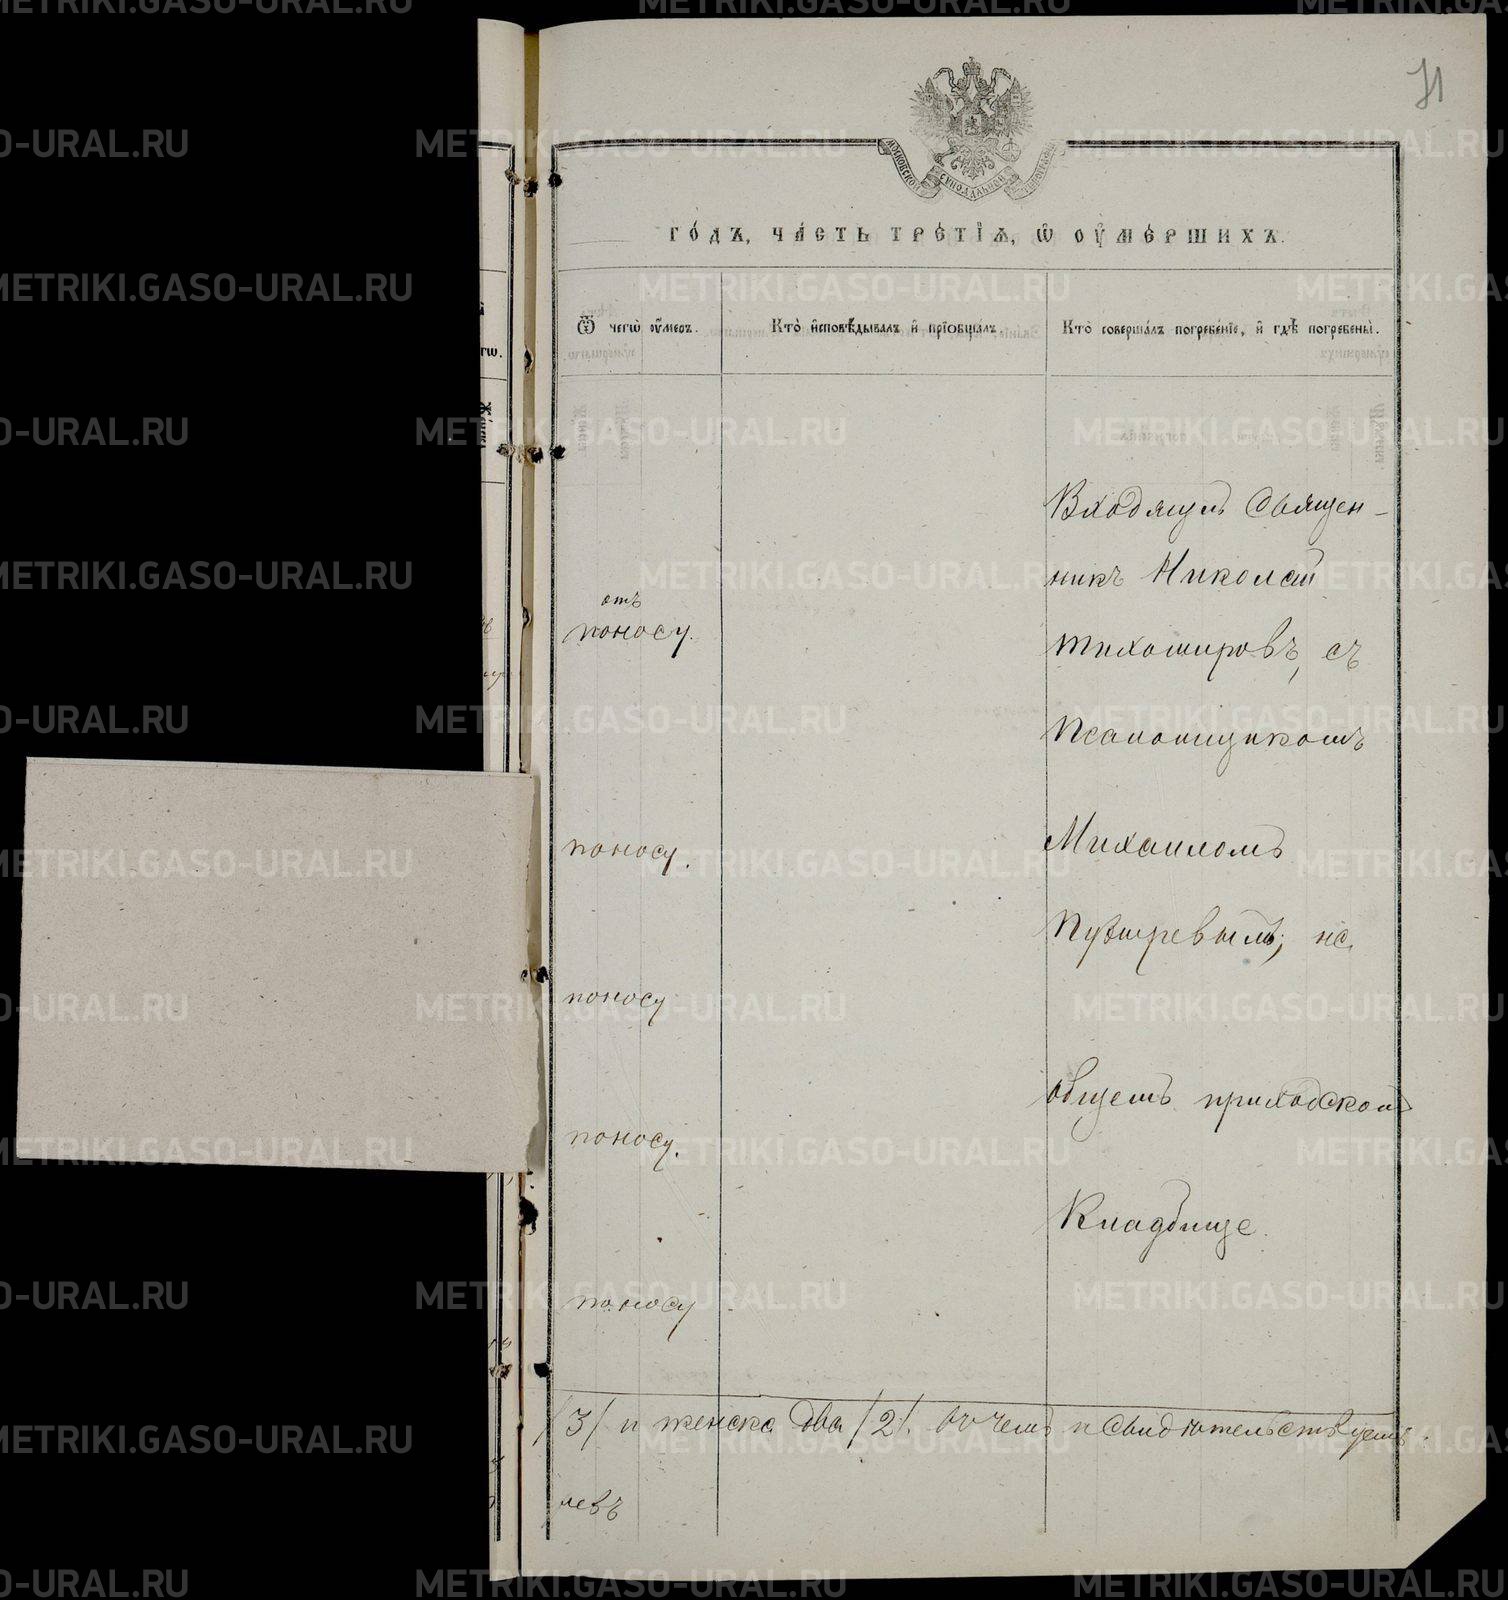 71
МОСКОВСКОЙ СѴНОДАЛЬНОЙ ТИПОГРАФІИ
ГО́ДЪ, ЧА́СТЬ ТРЕ́ТІѦ, Ѡ҆ ОУ҆МЕ́РШИХЪ.
Ѿ чегѡ̀ оу҆́меръ.
Кто̀ и҆сповѣ́дывалъ и҆ прїѻбща́лъ.
Кто̀ соверша́лъ погребе́нїе, и҆ гдѣ̀ погребены̀.
Входящій Священ-
никъ Николай
отъ
поносу.
Тихомировъ, съ
Псаломщикомъ
поносу.
Михаиломъ
Пузыревымъ, на
поносу
общемъ приходскомъ
поносу.
Кладбище.
поносу
/3/ и женска два /2/. въ чемъ и свидѣтельствуемъ.
левъ
METRIKI.GASO-URAL.RU